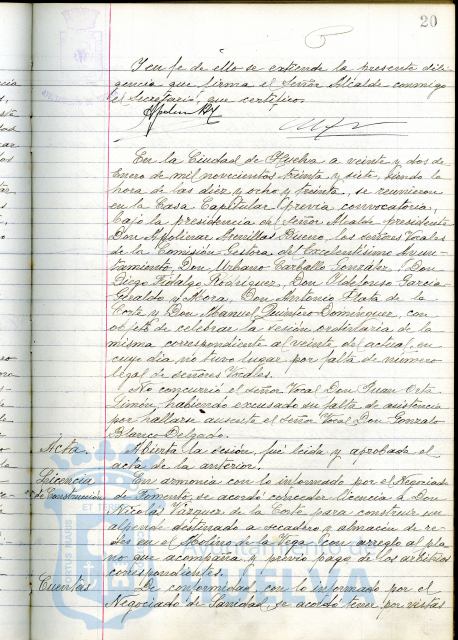 20
Y en fe de ello se extiende la presente dili-
gencia que firma el Señor Alcalde conmigo
el Secretario, que certifico.
En la Ciudad de Huelva a veinte y dos de
Enero de mil novecientos treinta y siete, siendo la
hora de las diez y ocho y treinta, se reunieron
en la Casa Capitular, previa convocatoria,
bajo la presidencia del Señor Alcalde-presidente
Don Apolinar Arenillas Bueno, los señores Vocales
de la Comisión Gestora del Excelentísimo Ayun-
tamiento, Don Urbano Carballo González, Don
Diego Fidalgo Rodríguez, Don Ildefonso García-
Giraldo y Mora, Don Antonio Plata de la
Corte y Don Manuel Quintero Domínguez, con
objeto de celebrar la sesión ordinaria de la
misma correspondiente al veinte del actual, en
cuyo día no tuvo lugar por falta de número
legal de señores Vocales.
No concurrió el señor Vocal Don Juan Orta
Limón, habiendo excusado su falta de asistencia
por hallarse ausente el señor Vocal Don Gonzalo
Blanco Delgado.
Acta. Abierta la sesión, fué leída y aprobada el
acta de la anterior.
Licencia de Construcción En armonía con lo informado por el Negociado
de Fomento, se acordó conceder licencia a Don
Nicolás Vázquez de la Corte para construir un
alpende destinado a secadero y almacén de re-
des en el Molino de la Vega, con arreglo al pla-
no que acompaña y previo pago de los arbitrios
correspondientes.
Cuentas De conformidad con lo informado por el
Negociado de Sanidad, se acordó tener por vistas
HUELVA